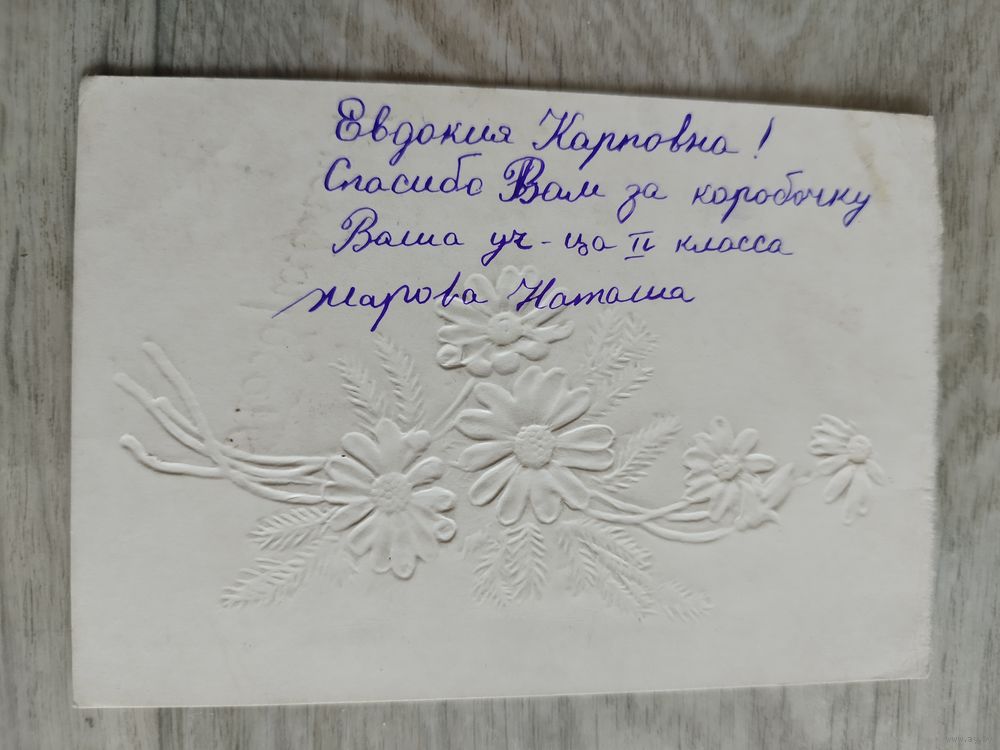 Евдокия Карповна!
Спасибо Вам за коробочку
Ваша уч-ца II класса
Жарова Наташа